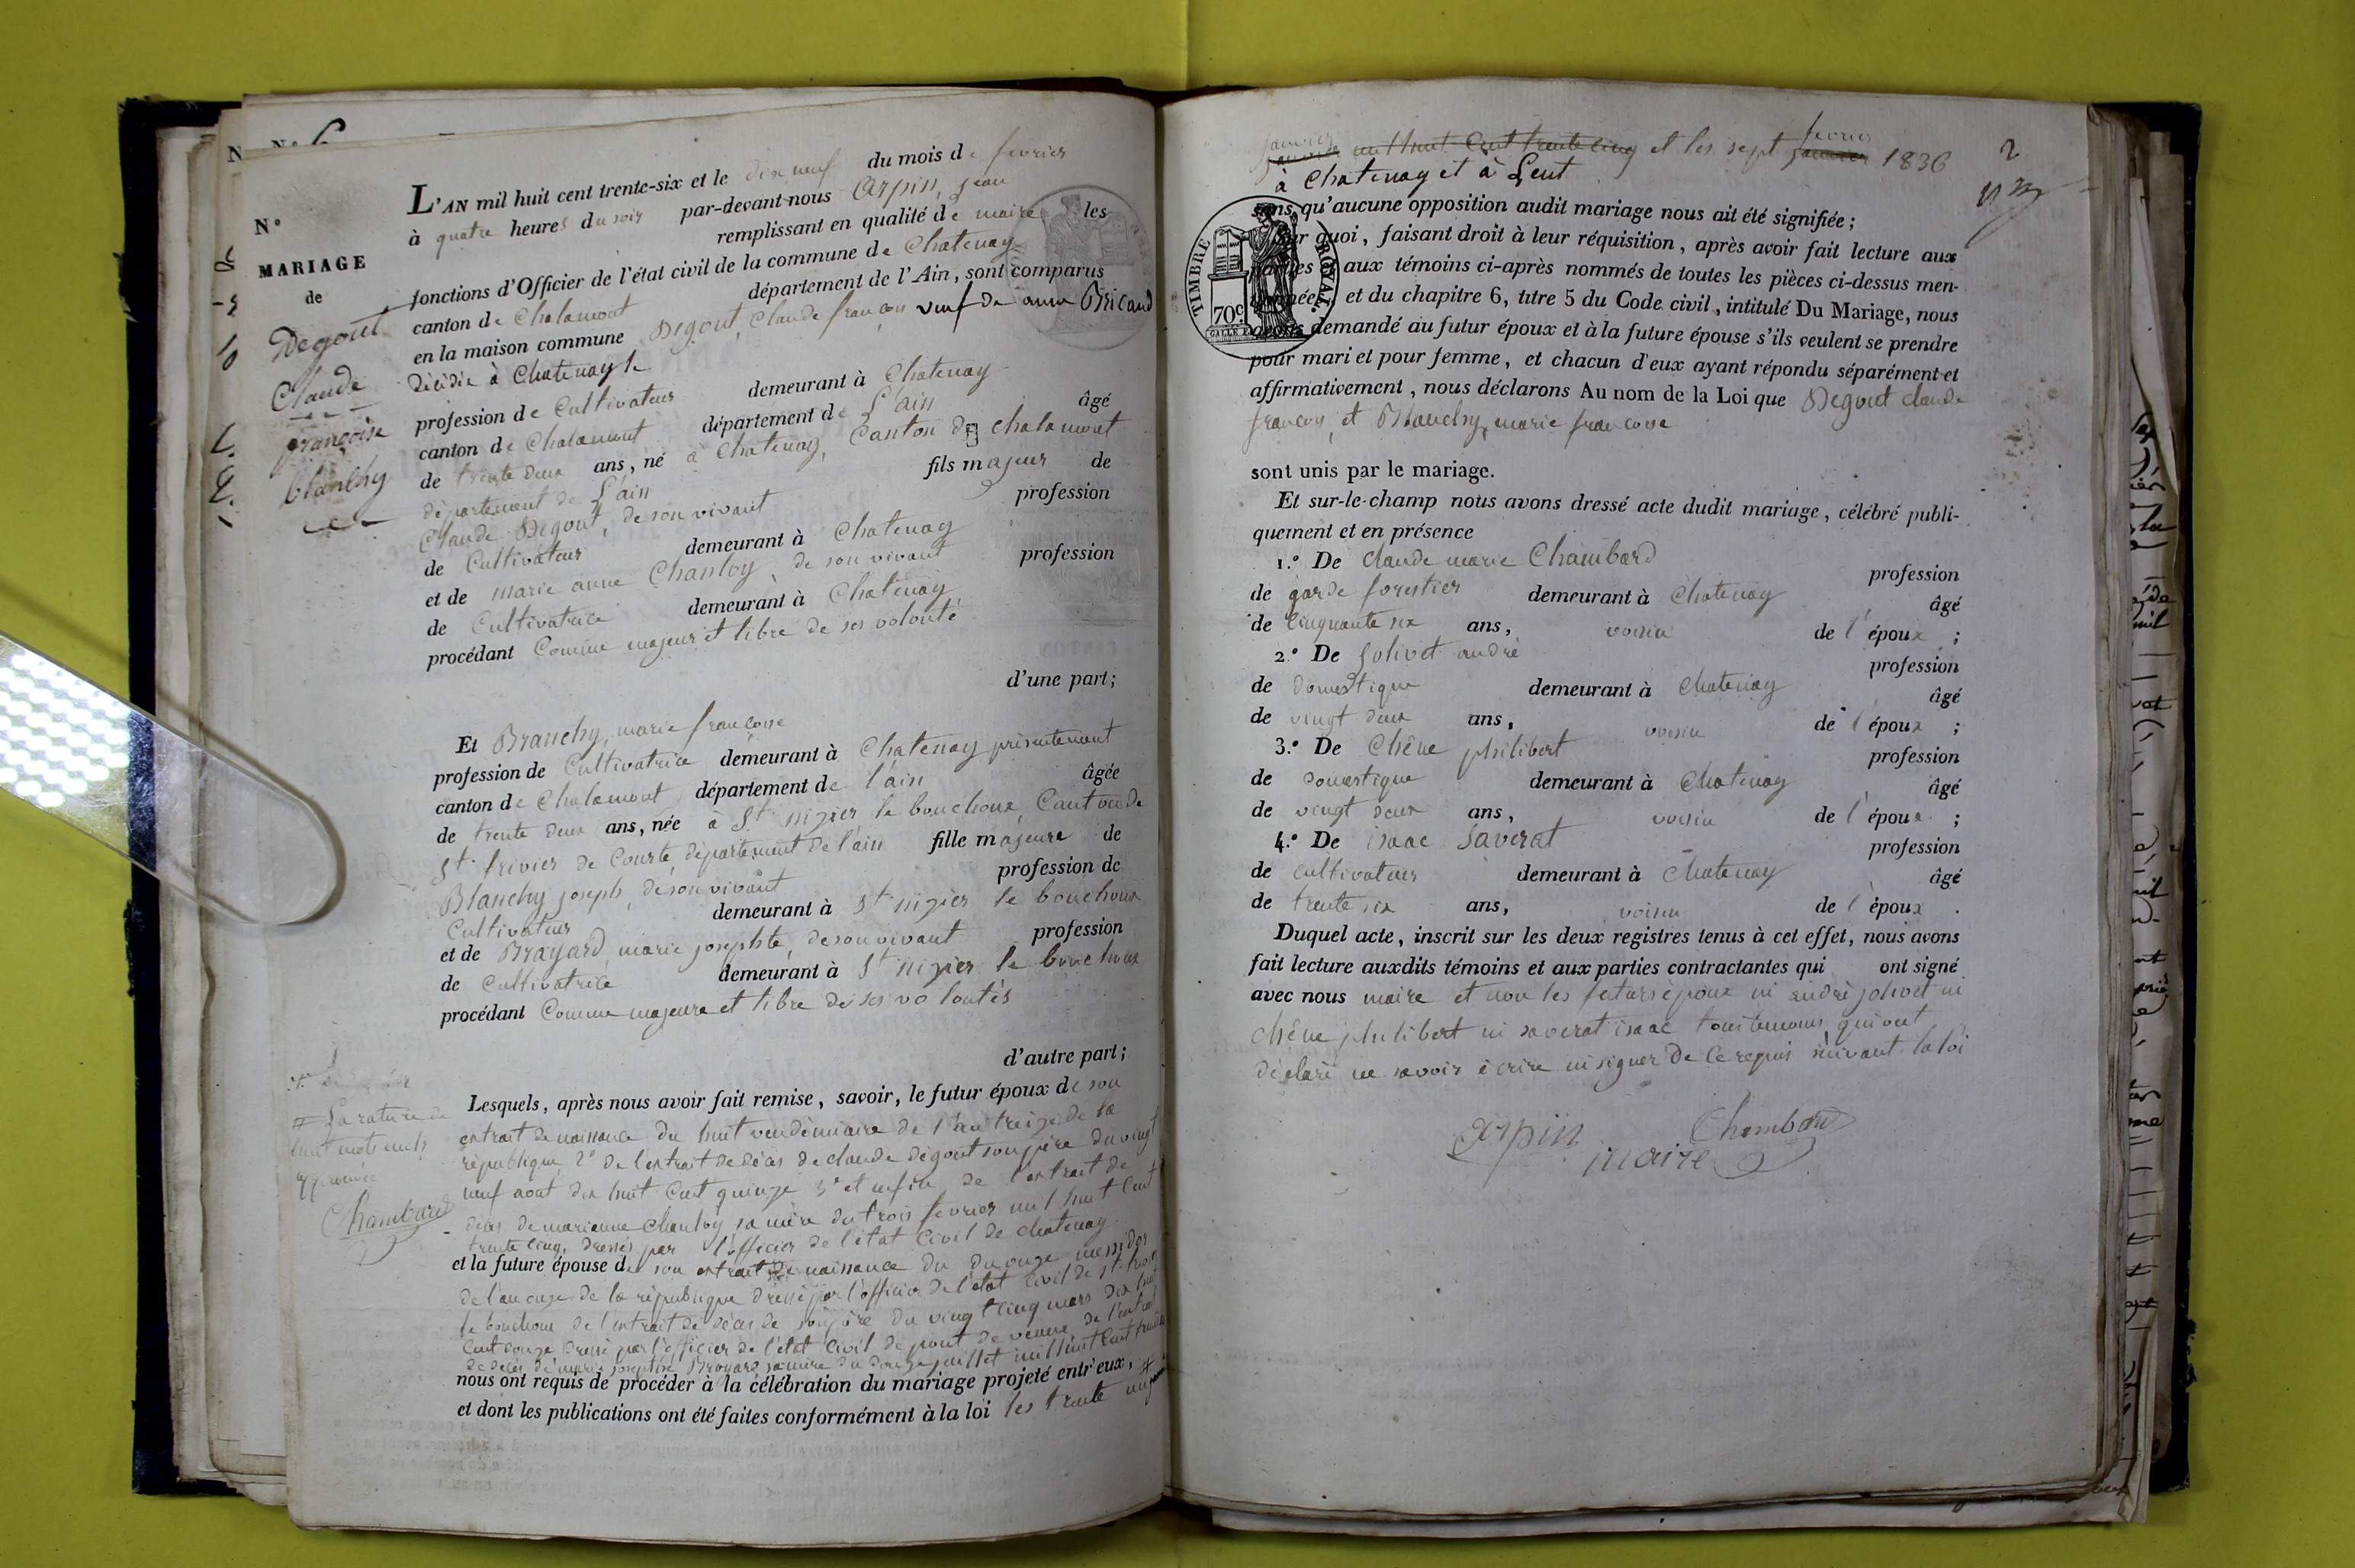 N°
MARIAGE
de
Degout
Claude
françoise
blanchy
L'AN mil huit cent trente-six et le dix neuf du mois de fevrier
à quatre heures du soir par-devant nous Arpin, jean
remplissant en qualité de maire les
fonctions d'Officier de l'état civil de la commune de Chatenay
canton de Chalamont département de l'Ain, sont comparus
en la maison commune Degout, Claude françois veuf de anne Bricaud
décédée à Chatenay le
profession de Cultivateur demeurant à Chatenay
canton de Chalamont département de L'ain âgé
de trente deux ans, né à Chatenay, Canton de chalamont
département de L'ain fils majeur de
Claude Degout, de son vivant profession
de Cultivateur demeurant à Chatenay
et de marie anne Chanloy, de son vivant profession
de Cultivatrice demeurant à Chatenay
procédant Comme majeur et libre de ses volonté
d'une part;
Et Branchy, marie françoise
profession de Cultivatrice demeurant à Chatenay présentement
canton de Chalamont département de l'ain âgée
de trente deux ans, née à St nizier le bouchoux, Canton de
St trivier de Courte, département de l'ain fille majeure de
Blanchy joseph, de son vivant profession de
Cultivateur demeurant à St nizier le bouchoux
et de Brayard, marie josephte, de son vivant profession
de Cultivatrice demeurant à St nizier le bouchoux
procédant Comme majeure et libre de ses volontés
d'autre part;
Lesquels, après nous avoir fait remise, savoir, le futur époux de son
extrait de naissance du huit vendémiaire de l'an treize de la
république, 2° de l'extrait de décès de claude degout son père du vingt
neuf aout dix huit Cent quinze 3° et enfin de l'extrait de
décès de marianne chanloy sa mère du trois fevrier mil huit Cent
trente cinq, dressés par l'officier de l'état Civil de chatenay
et la future épouse de son extrait de naissance du du onze messidor
de l'an onze de la république dressé par l'officier de l'état Civil de St
le bouchoux de l'extrait de décès de son père du vingt cinq mars dix huit
Cent douze dressé par l'officier de l'état Civil de pont de veaux, de l'extrait
de décès de marie josephte Brayard sa mère du douze juillet mil huit Cent
nous ont requis de procéder à la célébration du mariage projeté entr'eux, #
et dont les publications ont été faites conformément à la loi les trente un
# La rature de
huit mots nuls
approuvée
Chambard
janvier mil huit Cent trente cinq et les sept janvier fevrier 1836
2
à Chatenay et à Lent
sans qu'aucune opposition audit mariage nous ait été signifiée;
Sur quoi, faisant droit à leur réquisition, après avoir fait lecture aux
parties et aux témoins ci-après nommés de toutes les pièces ci-dessus men-
tionnées, et du chapitre 6, titre 5 du Code civil, intitulé Du Mariage, nous
avons demandé au futur époux et à la future épouse s'ils veulent se prendre
pour mari et pour femme, et chacun d'eux ayant répondu séparément et
affirmativement, nous déclarons Au nom de la Loi que Degout claude
françois, et Blanchy, marie françoise
TIMBRE ROYAL
70c.
sont unis par le mariage.
Et sur-le-champ nous avons dressé acte dudit mariage, célébré publi-
quement et en présence
1.° De claude marie Chambard profession
de garde forestier demeurant à Chatenay âgé
de Cinquante six ans, voisin de l'époux ;
2.° De jolivet andré profession
de domestique demeurant à Chatenay âgé
de vingt deux ans, voisin de l'époux ;
3.° De Chêne philibert profession
de domestique demeurant à Chatenay âgé
de vingt deux ans, voisin de l'époux ;
4.° De isaac Saverat profession
de cultivateur demeurant à Chatenay âgé
de trente six ans, voisin de l'époux .
Duquel acte, inscrit sur les deux registres tenus à cet effet, nous avons
fait lecture auxdits témoins et aux parties contractantes qui ont signé
avec nous maire et non les futurs époux ni andré jolivet ni
chêne philibert ni saverat isaac tous témoins, qui ont
déclaré ne savoir écrire ni signer de ce requis suivant la loi
Arpin maire
Chambard